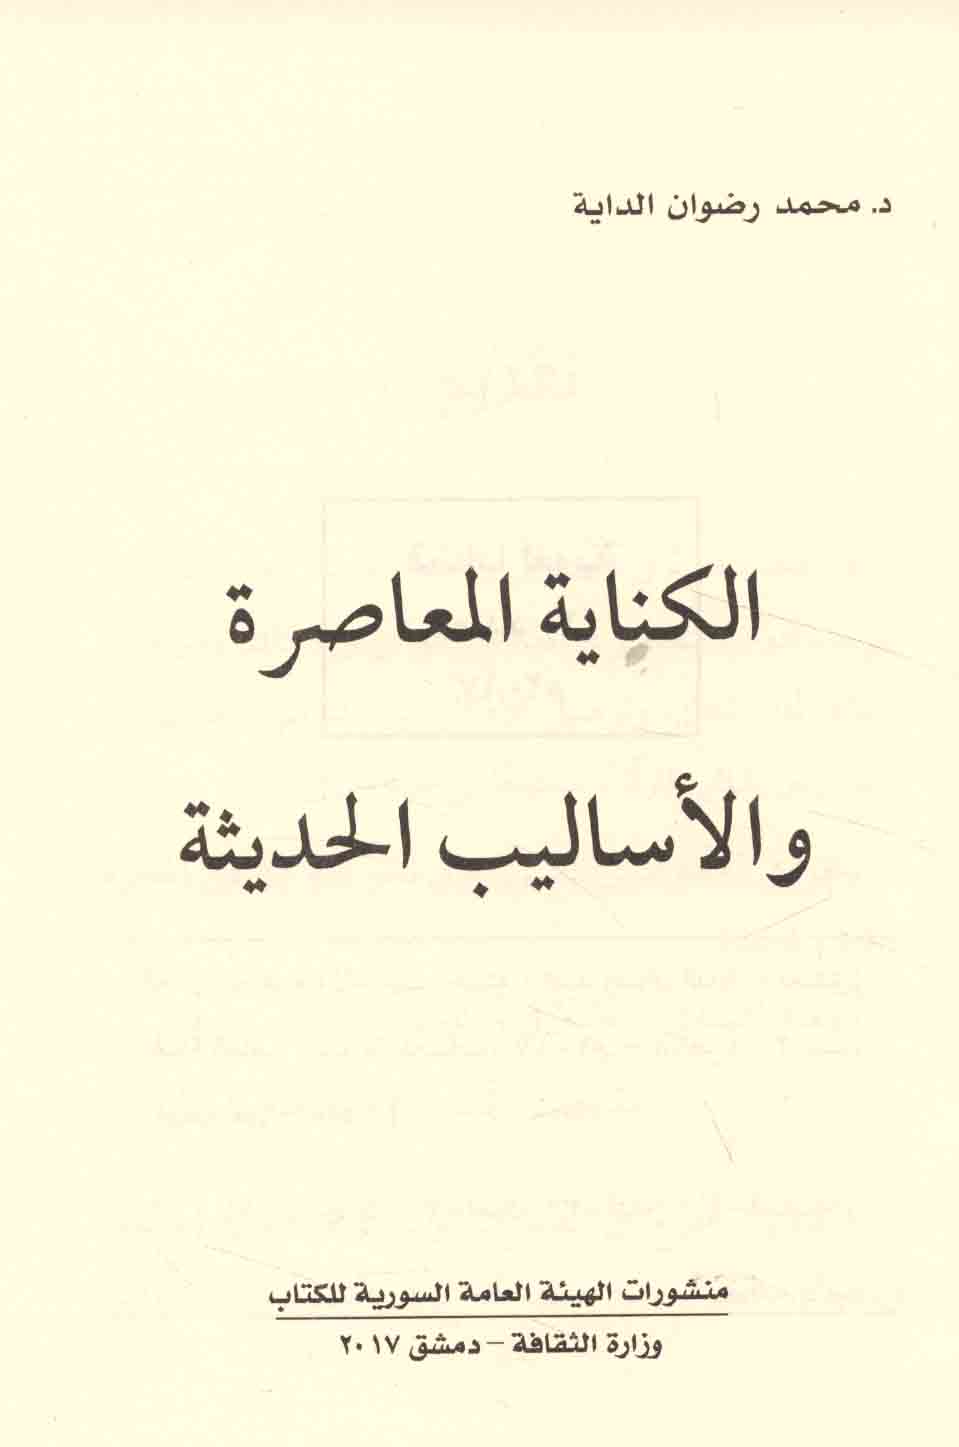 د. محمد رضوان الداية
الكناية المعاصرة
والأساليب الحديثة
منشورات الهيئة العامة السورية للكتاب
وزارة الثقافة - دمشق ٢٠١٧